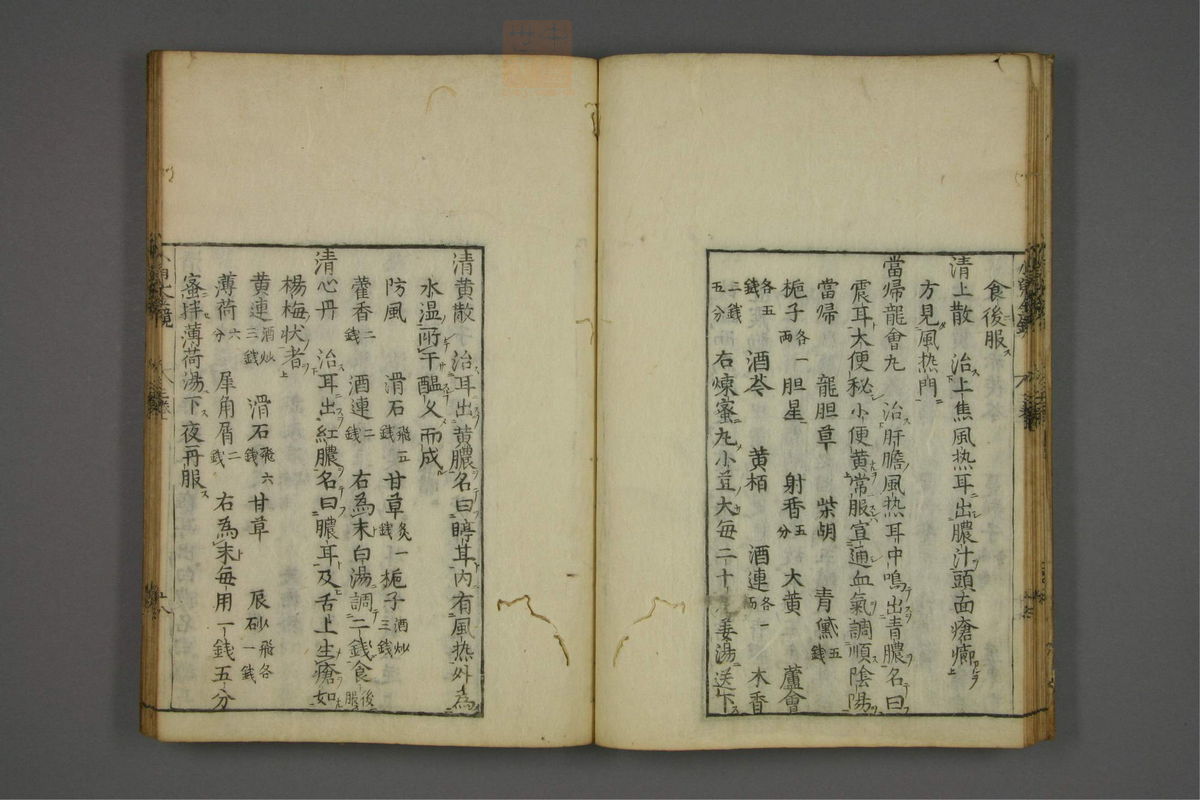 食後服
清上散 治上焦風热耳出膿汁頭面瘡癤
方見風热門
當帰龍會丸 治肝膽風热耳中鳴出青膿名曰
震耳大便秘小便黄常服宣通血氣調順陰陽
當帰 龍胆草 柴胡 青黛五錢
栀子各一兩 胆星 射香五分 大黄 蘆會
各五錢 酒芩 黄栢 酒連各一兩 木香
二錢五分 右煉蜜丸小豆大毎二十丸姜湯送下
清黄散 治耳出黄膿名曰聤耳内有風热外為
水温所干醞久而成
防風 滑石飛五錢 甘草炙一錢 栀子酒炒三錢
藿香二錢 酒連二錢 右為末白湯調二錢食後服
清心丹 治耳出紅膿名曰膿耳及舌上生瘡如
楊梅状者
黄連酒炒三錢 滑石飛六錢 甘草 辰砂飛各一錢
薄荷六分 犀角屑二錢 右為末毎用一錢五分
蜜拌薄荷湯下夜再服